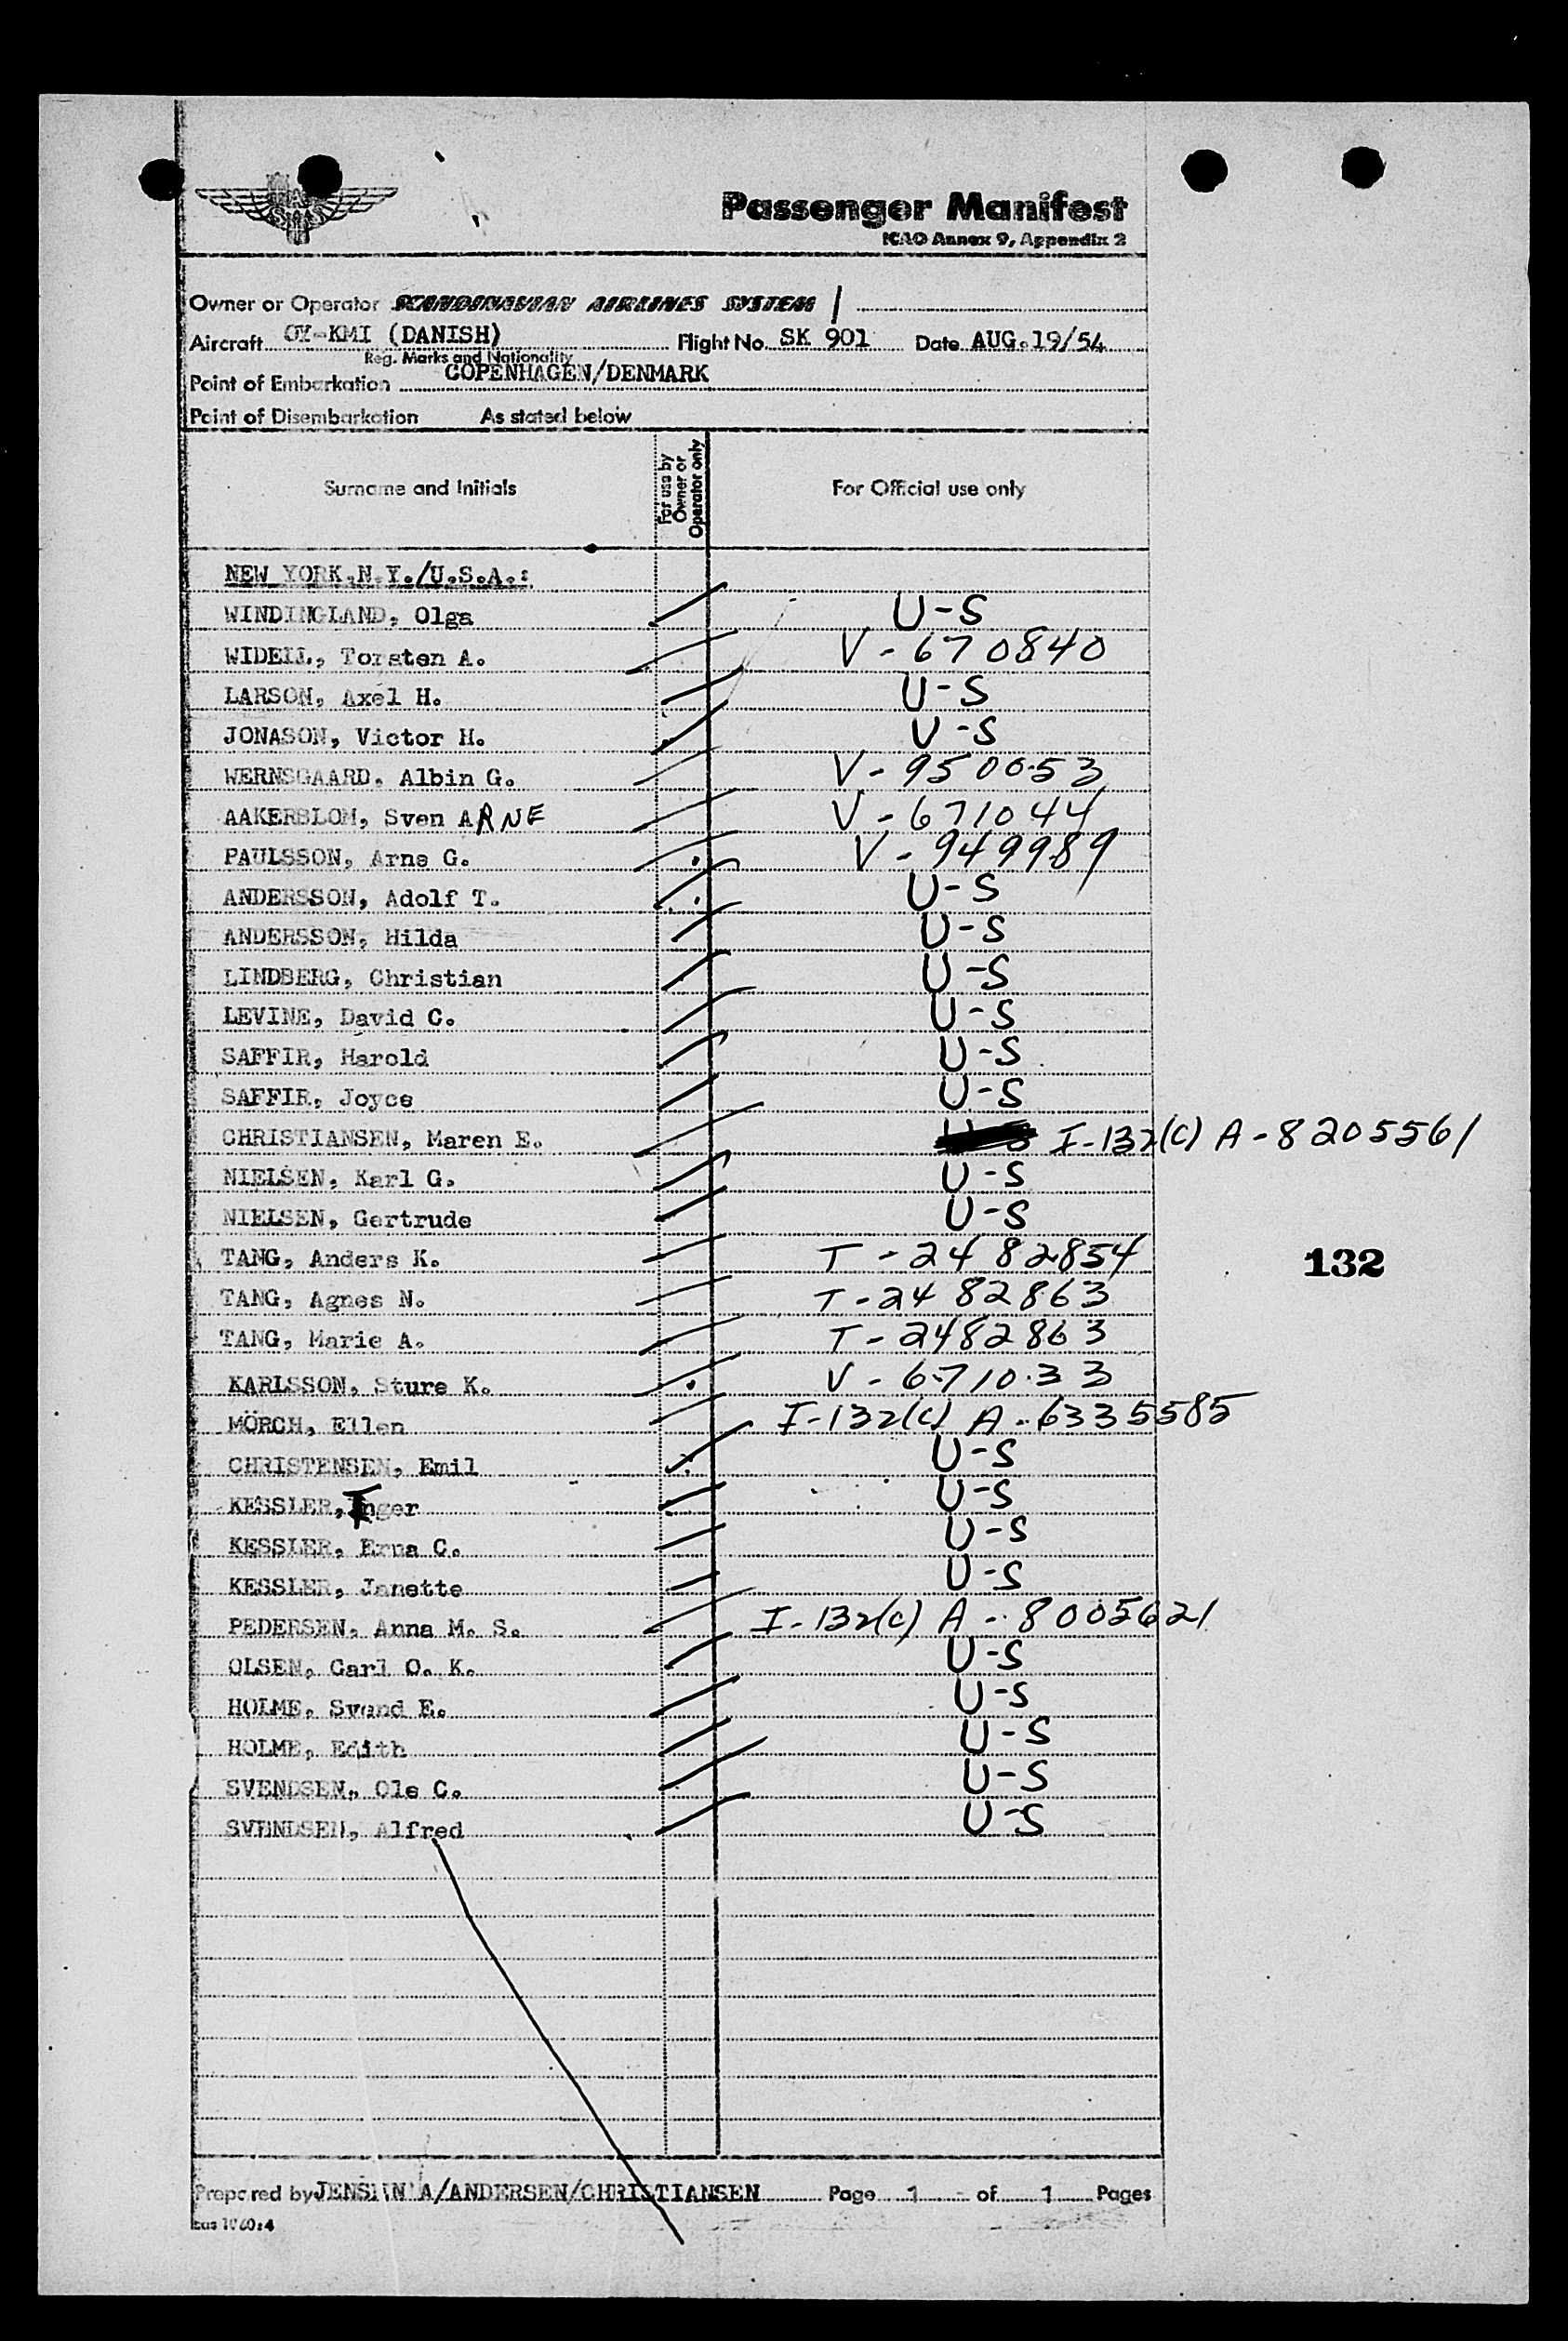 SAS
Passenger Manifest
ICAO Annex 9, Appendix 2
Owner or Operator SCANDINAVIAN AIRLINES SYSTEM /
Aircraft OY-KMI (DANISH) Flight No. SK 901 Date AUG.19/54
Reg. Marks and Nationality
Point of Embarkation COPENHAGEN/DENMARK
Point of Disembarkation As stated below
Surname and Initials For use by Owner or Operator only For Official use only
NEW YORK,N.Y./U.S.A.:
WINDINGLAND, Olga U-S
WIDELL, Torsten A. V-670840
LARSON, Axel H. U-S
JONASON, Victor H. U-S
WERNSGAARD. Albin G. V-950053
AAKERBLOM, Sven ARNE V-671044
PAULSSON, Arne G. V-949989
ANDERSSON, Adolf T. U-S
ANDERSSON, Hilda U-S
LINDBERG, Christian U-S
LEVINE, David C. U-S
SAFFIR, Harold U-S
SAFFIR, Joyce U-S
CHRISTIANSEN, Maren E. I-132(c) A-8205561
NIELSEN, Karl G. U-S
NIELSEN, Gertrude U-S
TANG, Anders K. T-2482854
132
TANG, Agnes N. T-2482863
TANG, Marie A. T-2482863
KARLSSON, Sture K. V-671033
MÖRCH, Ellen I-132(c) A-6335585
CHRISTENSEN, Emil U-S
KESSLER, Inger U-S
KESSLER, Erna C. U-S
KESSLER, Janette U-S
PEDERSEN, Anna M. S. I-132(c) A-8005621
OLSEN, Carl O. K. U-S
HOLME, Svend E. U-S
HOLME, Edith U-S
SVENDSEN, Ole C. U-S
SVENDSEN, Alfred U-S
Prepared by /ANDERSEN/CHRISTIANSEN Page 1 of 1 Pages